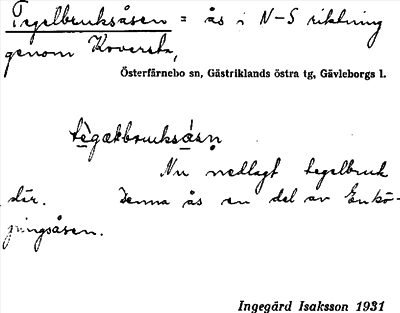 Tegelbruksåsen = ås i N-S riktning
genom Koversta,
Österfärnebo sn, Gästriklands östra tg, Gävleborgs l.
tè̱gəkbruksá̱sn̥
Nu nedlagt tegelbruk
där. Denna ås en del av Enkö-
pingsåsen.
Ingegärd Isaksson 1931